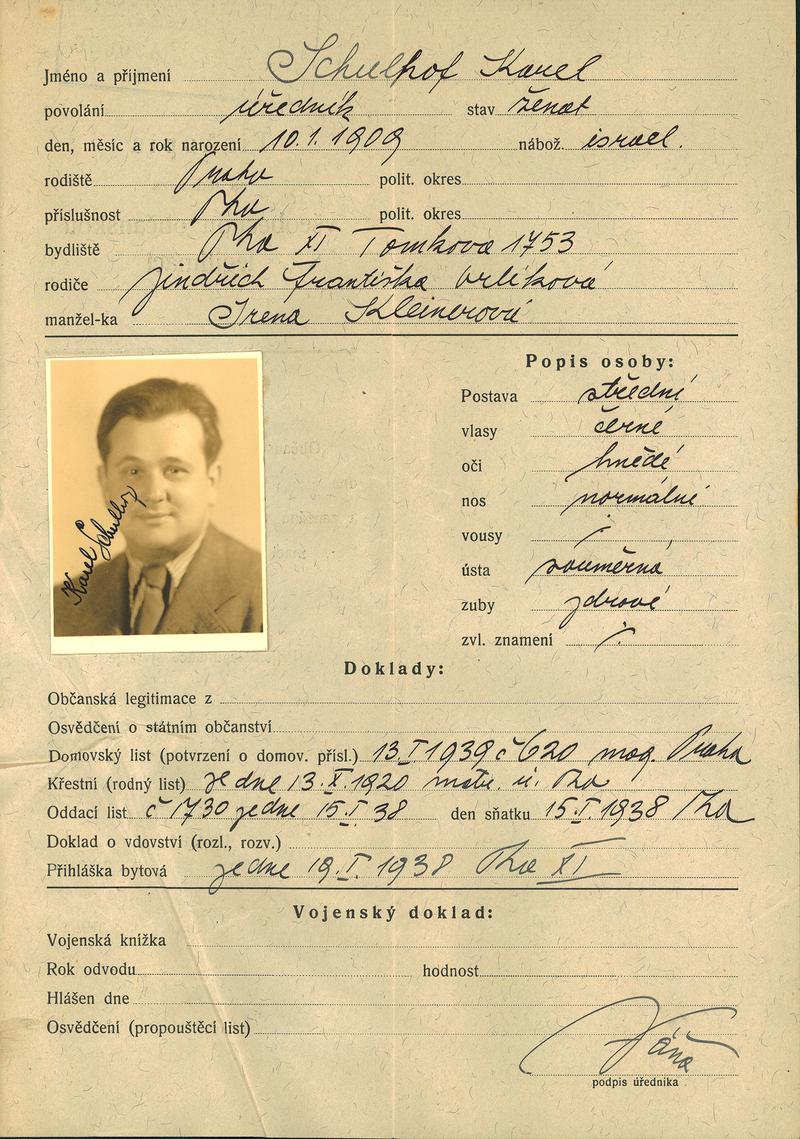 Jméno a příjmení Schulhof Karel
povolání úředník stav ženat
den, měsíc a rok narození 10.1.1909 nábož. israel.
rodiště Praha polit. okres
příslušnost Pha polit. okres
bydliště Pha XI Tomkova 1753
rodiče Jindřich Františka Orlíková
manžel-ka Irena Kleinerová
Popis osoby:
Postava střední
vlasy černé
oči hnědé
nos normální
vousy /.
ústa souměrná
zuby zdravé
zvl. znamení /.
Karel Schulhof
Doklady:
Občanská legitimace z
Osvědčení o státním občanství
Domovský list (potvrzení o domov. přísl.) 13.I.1939 č 620 mag. Praha
Křestní (rodný list) ze dne 13.X.1920 matr. ú. Pha
Oddací list č 1730 ze dne 15.I.38 den sňatku 15.I.1938 Pha
Doklad o vdovství (rozl., rozv.)
Přihláška bytová ze dne 19.I.1938 Pha XI
Vojenský doklad:
Vojenská knížka
Rok odvodu hodnost
Hlášen dne
Osvědčení (propouštěcí list)
Váňa
podpis úředníka